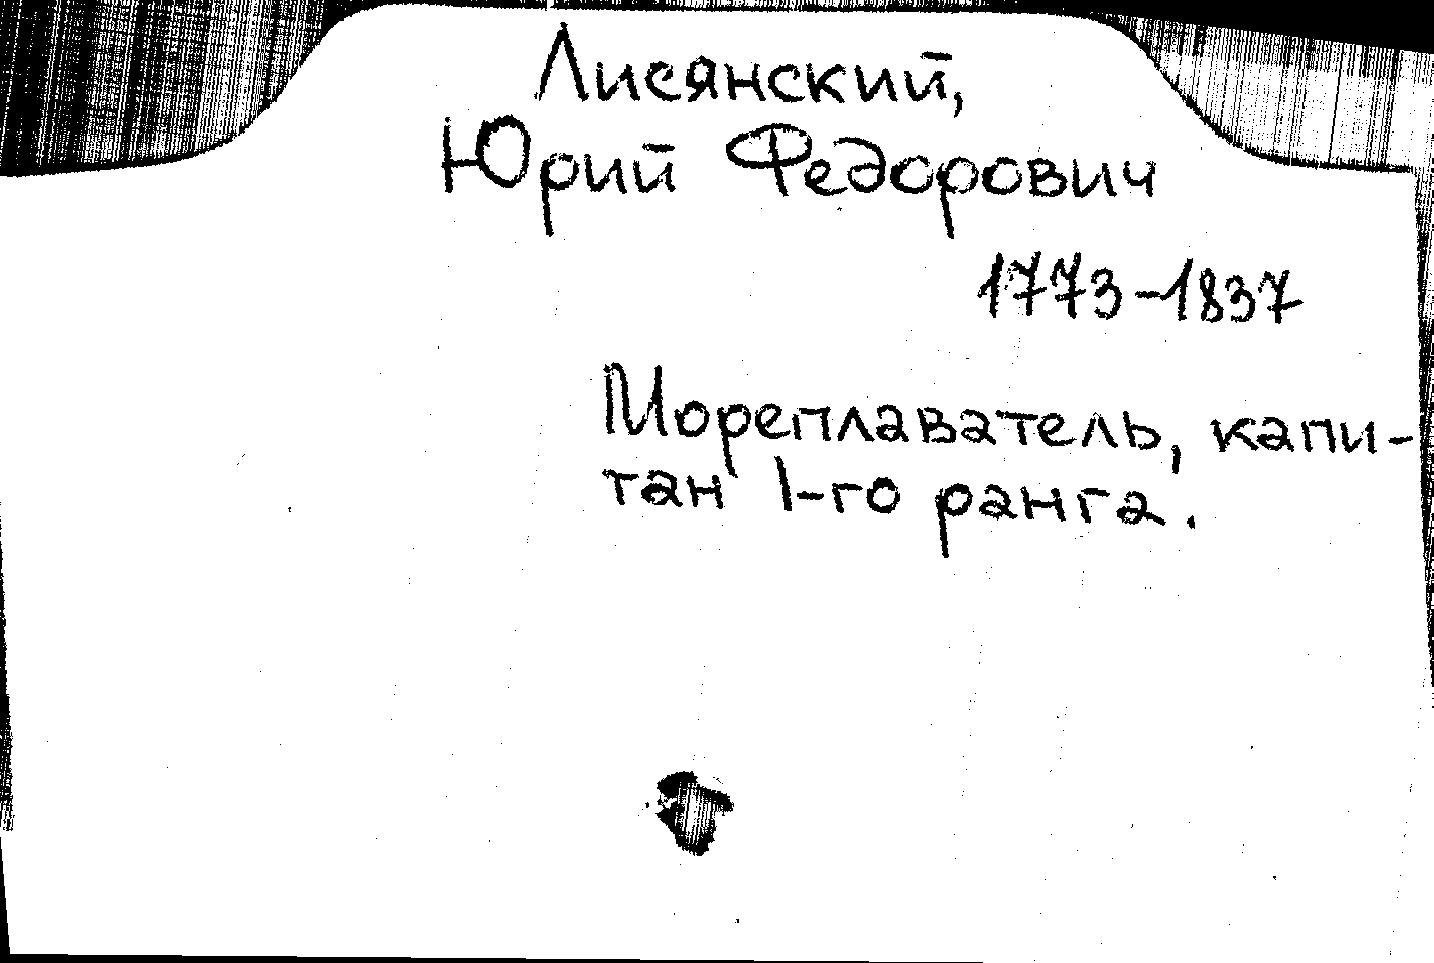 Лисянский,
Юрий Федорович
1773-1837
Мореплаватель, капи-
тан 1-го ранга.